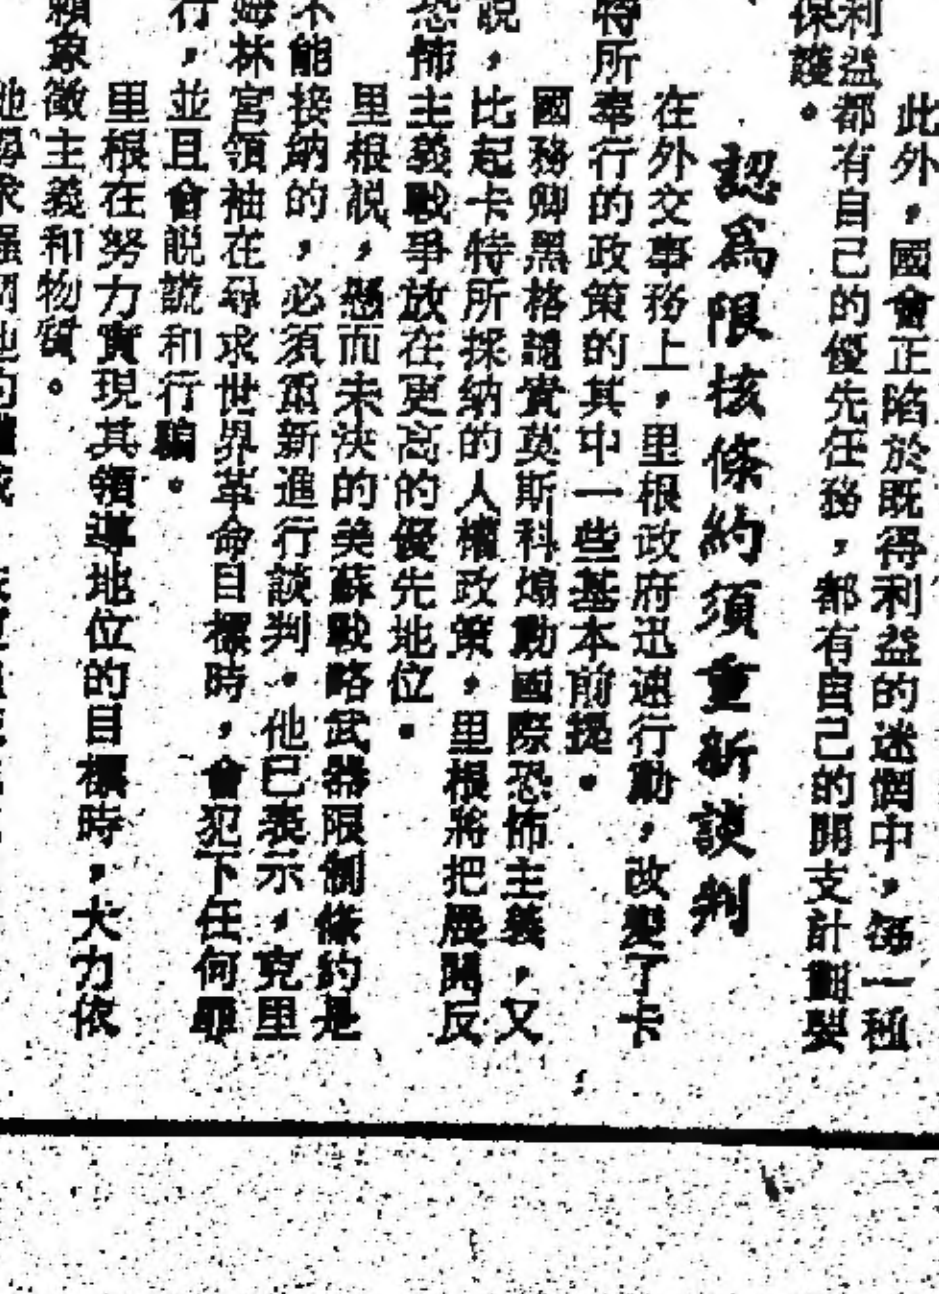 此外，國會正陷於既得利益的迷惘中，每一種
利益都有自己的優先任務，都有自己的開支計劃要
保護。
認為限核條約須重新談判
在外交事務上，里根政府迅速行動，改變了卡
特所奉行的政策的其中一些基本前提。
國務卿黑格譴責莫斯科煽動國際恐怖主義，又
説，比起卡特所採納的人權政策，里根將把展開反
恐怖主義戰爭放在更高的優先地位。
里根説，懸而未決的美蘇戰略武器限制條約是
不能接納的，必須重新進行談判。他已表示，克里
姆林宮領袖在尋求世界革命目標時，會犯下任何罪
行，並且會説謊和行騙。
里根在努力實現其領導地位的目標時，大力依
賴象徵主義和物質。